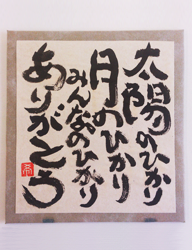 太陽のひかり
月のひかり
みんなのひかり
ありがとう